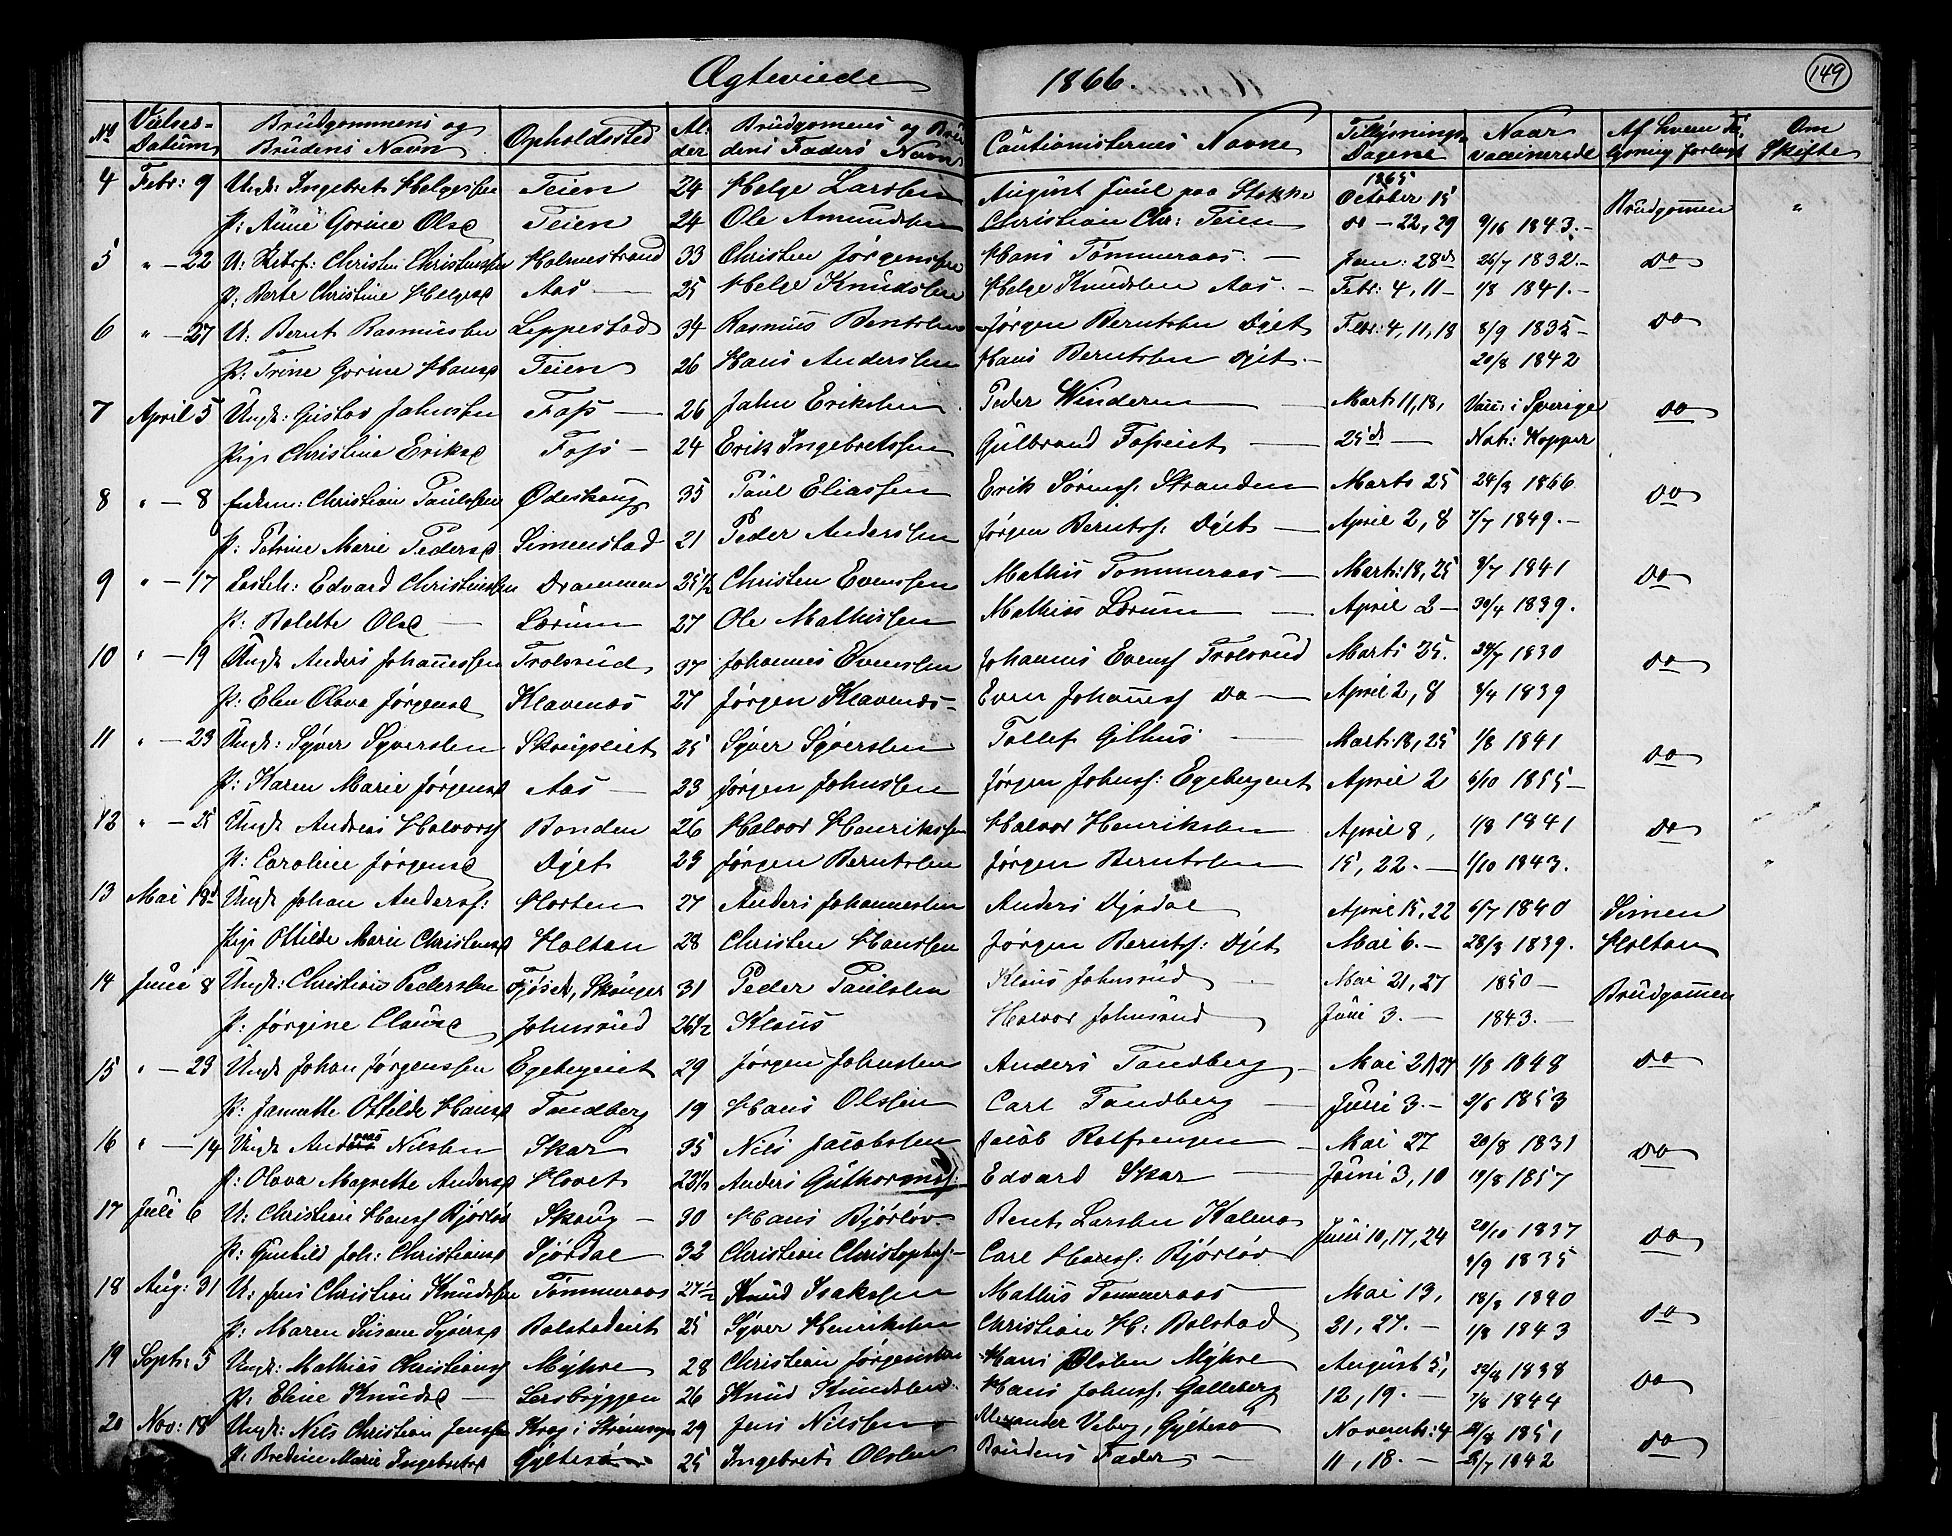 Ægteviede 1866 149
No Vielses-Datum Brudgommens og Brudens Navn Opholdssted Alder Brudgomens og Brudens Fæders Navn Cautionisternes Navne Tillysnings-Dagene Naar vaccinerede Af hvem Om Skifte
4 Febr: 9 Ungk: Ingebret Helgessen Teien 24 Helge Larssen August Juul paa Stokke 1865 October 15 Brudgommen "
P: Anne Gorine Olsd Teien 24 Ole Amundssen Christian Chr: Teien do – 22, 29 9/16 1843.-
5 " – 22 U: Christen Christenssen Holmestrand 33 Christen Jørgenssen Hans Tømmeraas. – Jan: 28de 26/7 1832.- do
P: Berte Christine Helgesd Aas – 25 Helge Knudssen Helge Knudssen Aas. – Febr: 4, 11 – 1/8 1841.-
6 " – 27 U: Bernt Rasmussen Leppestad 34 Rasmus Bentsen Jørgen Berntsen Døjet Febr: 4, 11, 18 8/9 1835 – do
P: Trine Gorine Hansd Teien 26 Hans Anderssen Hans Berntsen Døjet – 20/8 1842
7 April 5 Ungk: Gustav Johnssen Foss – 26 John Erikssen Peder Winderen Marts 11, 18, Vacc: i Sverige do
Pige Christine Eriksd Foss – 24 Erik Ingebretssen Gulbrand Fosseiet – 25de – Nat: Kopper
8 " – 8 Enkem: Christian Paulssen Ødeskoug 35 Paul Eliassen Erik Sørenss: Stranden Marts 25 24/3 1866 do
P: Petrine Marie Pedersd Simenstad 21 Peder Anderssen Jørgen Berntss: Døjet – April 2, 8 7/7 1849.-
9 " – 17 Edvard Christenssen Drammen 25 1/2 Christen Evenssen Mathis Tommeraas – Marts: 18, 25 3/7 1841 do
P: Bolette Olsd – Lorum 27 Ole Mathissen Mathis Lorum – April 2 – 30/4 1839.
10 " – 19 Ungk Anders Johannessen Trolsrud 37 Johannes Evenssen Johannes Evenss Trolsrud Marts 25. 24/7 1830 do
P: Elen Olava Jørgensd Klavenæs 27 Jørgen Klavenæs – Even Johannss do – April 2, 8 3/4 1839
11 " – 23 Ungk: Syver Syverssen Skougseiet 25 Syver Syverssen Tollef Gilhus – Marts 18, 25 1/8 1841 do
P: Karen Marie Jørgensd Aas – 23 Jørgen Johnssen Jørgen Johnss: Egebergeiet April 2 6/10 1855 –
12 " – 25 Ungk Andreas Halvorss Bonden 26 Halvor Henrikssen Halvor Henrikssen April 8, 1/8 1841 do
P: Caroline Jørgensd Døjet 23 Jørgen Berntsen Jørgen Berntsen 15, 22. – 1/10 1843. "
13 Mai 18d Ungk Johan Anderss: Horten 27 Anders Johannessen Anders April 15, 22 6/7 1840 Simen
Pige Ottilde Marie Christensd Holtan 28 Christen Hanssen Jørgen Berntss: Døjet Mai 6. – 28/3 1839. Holtan
14 Juni 8 Ungk: Christian Pederssen Fjøset, Skouger 31 Peder Paulssen Klaus Johnsrud – Mai 21, 27 1850 – Brudgommen
P: Jørgine Clausd Johnsrud 26 1/2 Klaus Halvor Johnsrud Juni 3. – 1843. –
15 " – 23 Ungk Johan Jørgenssen Egebergeiet 29 Jørgen Johnssen Anders Tandberg – Mai 21, 27 1/8 1848 do
P: Jannette Ottilde Hansd Tandberg 19 Hans Olssen Carl Tandberg – Juni 3. – 2/6 1853
16 " – 14 Ungk Andreas Nilssen Skar 35 Nils Jacobssen Jacob – Mai 27 20/8 1831 do
P: Olava Magrethe Andersd Hovet 23 1/2 Anders Guthormss: Edvard Skar – Juni 3, 10 19/8 1857
17 Juli 6 U: Christian Hanss Bjørløv Skoug – 30 Hans Bjørløv Bent Larssen Holmen Juni 10, 17, 24 20/10 1837 do
P: Gunhild Joh: Christiansd Fjørdal 32 Christian Christophss: – Carl Hanss: Bjørløv 4/9 1835
18 Aug: 31 U: Jens Christian Knudssen Tømmeraas 24 1/2 Knud Isakssen Mathis Tømmeraas – Mai 13, 18/3 1840 do
P: Maren Susane Syversd Bolstadeiet 25 Syver Henrikssen Christian H: Bolstad 21, 27. – 1/8 1843
19 Septb: 5 Ungk: Mathias Christianss Myhre 28 Christian Jørgenssen Hans Olsen Myhre August 5, 22/8 1838 do
P: Eline Knudsd – Lersbryggen 26 Knud Knudssen Hans Johnss. Galleberg 12, 19. – 7/8 1844
20 Nov: 18 Ungk: Nils Christian Jenssen i Strømmen 29 Jens Nilssen Alexander Veberg, Gyltesø Novemb: 4 21/8 1851 do
P: Bredine Marie Ingebretsd Gyltesø 25 Ingebret Olssen Brudens Fader – 11, 18. – 5/7 1842